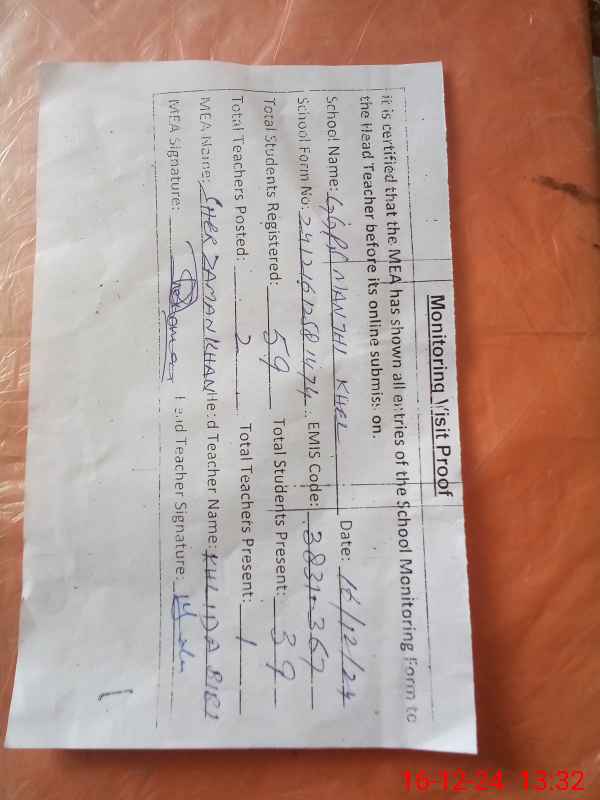 Monitoring Visit Proof
it is certified that the MEA has shown all entries of the School Monitoring Form to
the Head Teacher before its online submission.
School Name: GGPS MANJHI KHEL Date: 16/12/24
School Form No: 24121612581474 EMIS Code: 38310367
Total Students Registered: 59 Total Students Present: 39
Total Teachers Posted: 2 Total Teachers Present: 1
MEA Name: SHER ZAMAN KHAN Head Teacher Name: KHLIDA BIBI
MEA Signature: Head Teacher Signature:
16-12-24 13:32